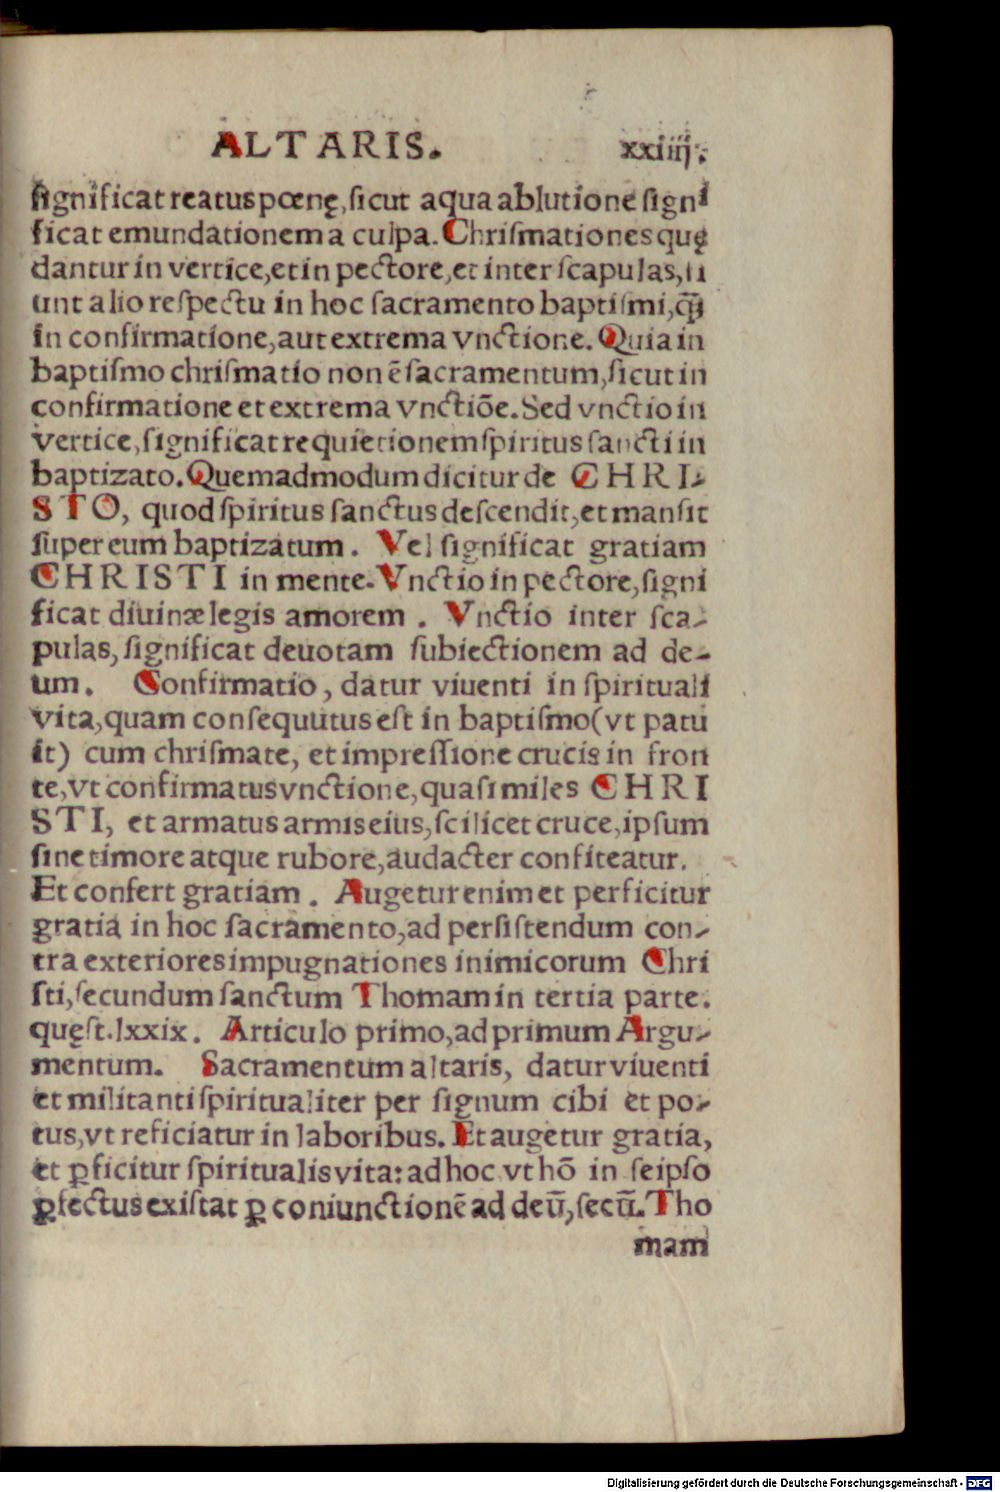 ALTARIS. xxiiij.
significat reatus pœnę, sicut aqua ablutione signi
ficat emundationem a culpa. Chrismationes quę
dantur in vertice, et in pectore, et inter scapulas, fi
unt alio respectu in hoc sacramento baptismi, q̃ȝ
in confirmatione, aut extrema vnctione. Quia in
baptismo chrismatio non ē sacramentum, sicut in
confirmatione et extrema vnctiōe. Sed vnctio in
vertice, significat requietionem spiritus sancti in
baptizato. Quemadmodum dicitur de CHRI-
STO, quod spiritus sanctus descendit, et mansit
super eum baptizatum. Vel significat gratiam
CHRISTI in mente. Vnctio in pectore, signi
ficat diuinæ legis amorem. Vnctio inter sca-
pulas, significat deuotam subiectionem ad de-
um. Confirmatio, datur viuenti in spirituali
vita, quam consequutus est in baptismo (vt patu
it) cum chrismate, et impressione crucis in fron
te, vt confirmatus vnctione, quasi miles CHRI
STI, et armatus armis eius, scilicet cruce, ipsum
sine timore atque rubore, audacter confiteatur.
Et confert gratiam. Augetur enim et perficitur
gratia in hoc sacramento, ad persistendum con-
tra exteriores impugnationes inimicorum Chri
sti, secundum sanctum Thomam in tertia parte.
quęst. lxxix. Articulo primo, ad primum Argu-
mentum. Sacramentum altaris, datur viuenti
et militanti spiritualiter per signum cibi et po-
tus, vt reficiatur in laboribus. Et augetur gratia,
et ꝑficitur spiritualis vita: ad hoc vt hō in seipso
ꝑfectus existat ꝑ coniunctionē ad deū, secū. Tho
mam
Digitalisierung gefördert durch die Deutsche Forschungsgemeinschaft - DFG